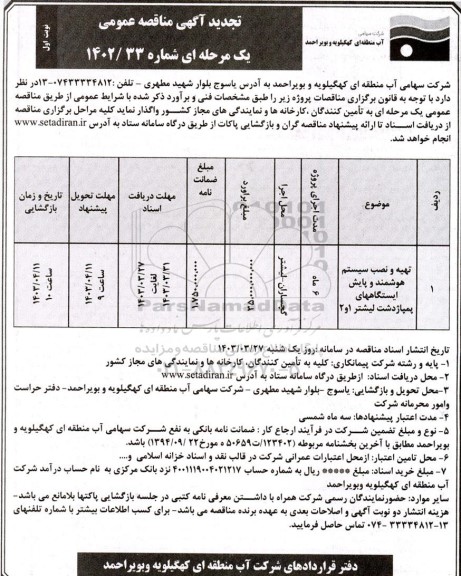 شرکت سهامی
آب منطقه‌ای کهگیلویه و بویراحمد
تجدید آگهی مناقصه عمومی
یک مرحله ای شماره ۳۳ /۱۴۰۲
نوبت اول
شرکت سهامی آب منطقه ای کهگیلویه و بویراحمد به آدرس یاسوج بلوار شهید مطهری – تلفن :۰۷۴۳۳۳۳۴۸۱۲-۱۳در نظر
دارد با توجه به قانون برگزاری مناقصات پروژه زیر را طبق مشخصات فنی و برآورد ذکر شده با شرایط عمومی از طریق مناقصه
عمومی یک مرحله ای به تأمین کنندگان ،کارخانه ها و نمایندگی های مجاز کشور واگذار نماید کلیه مراحل برگزاری مناقصه
از دریافت اسناد تا ارائه پیشنهاد مناقصه گران و بازگشایی پاکات از طریق درگاه سامانه ستاد به آدرس www.setadiran.ir
انجام خواهد شد.
ردیف
موضوع
مدت اجرای پروژه
محل اجرا
مبلغ برآورد
مبلغ ضمانت نامه
مهلت دریافت اسناد
مهلت تحویل پیشنهاد
تاریخ و زمان بازگشایی
۱
تهیه و نصب سیستم
هوشمند و پایش
ایستگاههای
پمپاژدشت لیشتر ۱و۲
۶ ماه
گچساران-لیشتر
۱٫۷۵۰٫۰۰۰٫۰۰۰
۱۴۰۳/۰۳/۲۷
لغایت
۱۴۰۳/۰۳/۳۱
۱۴۰۳/۰۴/۱۱
ساعت ۹
۱۴۰۳/۰۴/۱۱
ساعت ۱۰
ParsNamadData
تاریخ انتشار اسناد مناقصه در سامانه :روز یک شنبه ۱۴۰۳/۰۳/۲۷
۱- پایه و رشته شرکت پیمانکاری: کلیه به تأمین کنندگان،کارخانه ها و نمایندگی های مجاز کشور
۲- محل دریافت اسناد: ازطریق درگاه سامانه ستاد به آدرس www.setadiran.ir
۳- محل تحویل و بازگشایی: یاسوج -بلوار شهید مطهری – شرکت سهامی آب منطقه ای کهگیلویه و بویراحمد- دفتر حراست
وامور محرمانه شرکت
۴- مدت اعتبار پیشنهادها: سه ماه شمسی
۵- نوع و مبلغ تضمین شرکت در فرآیند ارجاع کار : ضمانت نامه بانکی به نفع شرکت سهامی آب منطقه ای کهگیلویه و
بویراحمد مطابق با آخرین بخشنامه مربوطه (۱۲۳۴۰۲/ت۵۰۶۵۹ه مورخ۲۲ /۱۳۹۴/۰۹) باشد.
۶- محل تامین اعتبار: ازمحل اعتبارات عمرانی شرکت در قالب نقد و اسناد خزانه اسلامی و....
۷- مبلغ خرید اسناد: مبلغ ***** ریال به شماره حساب ۴۰۰۱۱۱۹۰۰۴۰۲۱۲۱۷ نزد بانک مرکزی به نام حساب درآمد شرکت
آب منطقه ای کهگیلویه وبویراحمد
سایر موارد: حضورنمایندگان رسمی شرکت همراه با داشتن معرفی نامه کتبی در جلسه بازگشایی پاکتها بلامانع می باشد-
هزینه انتشار دو نوبت آگهی و اصلاحات بعدی به عهده برنده مناقصه می باشد- برای کسب اطلاعات بیشتر با شماره تلفنهای
۱۳-۳۳۳۳۴۸۱۲ -۰۷۴ تماس حاصل فرمایید.
دفتر قراردادهای شرکت آب منطقه ای کهگیلویه وبویراحمد